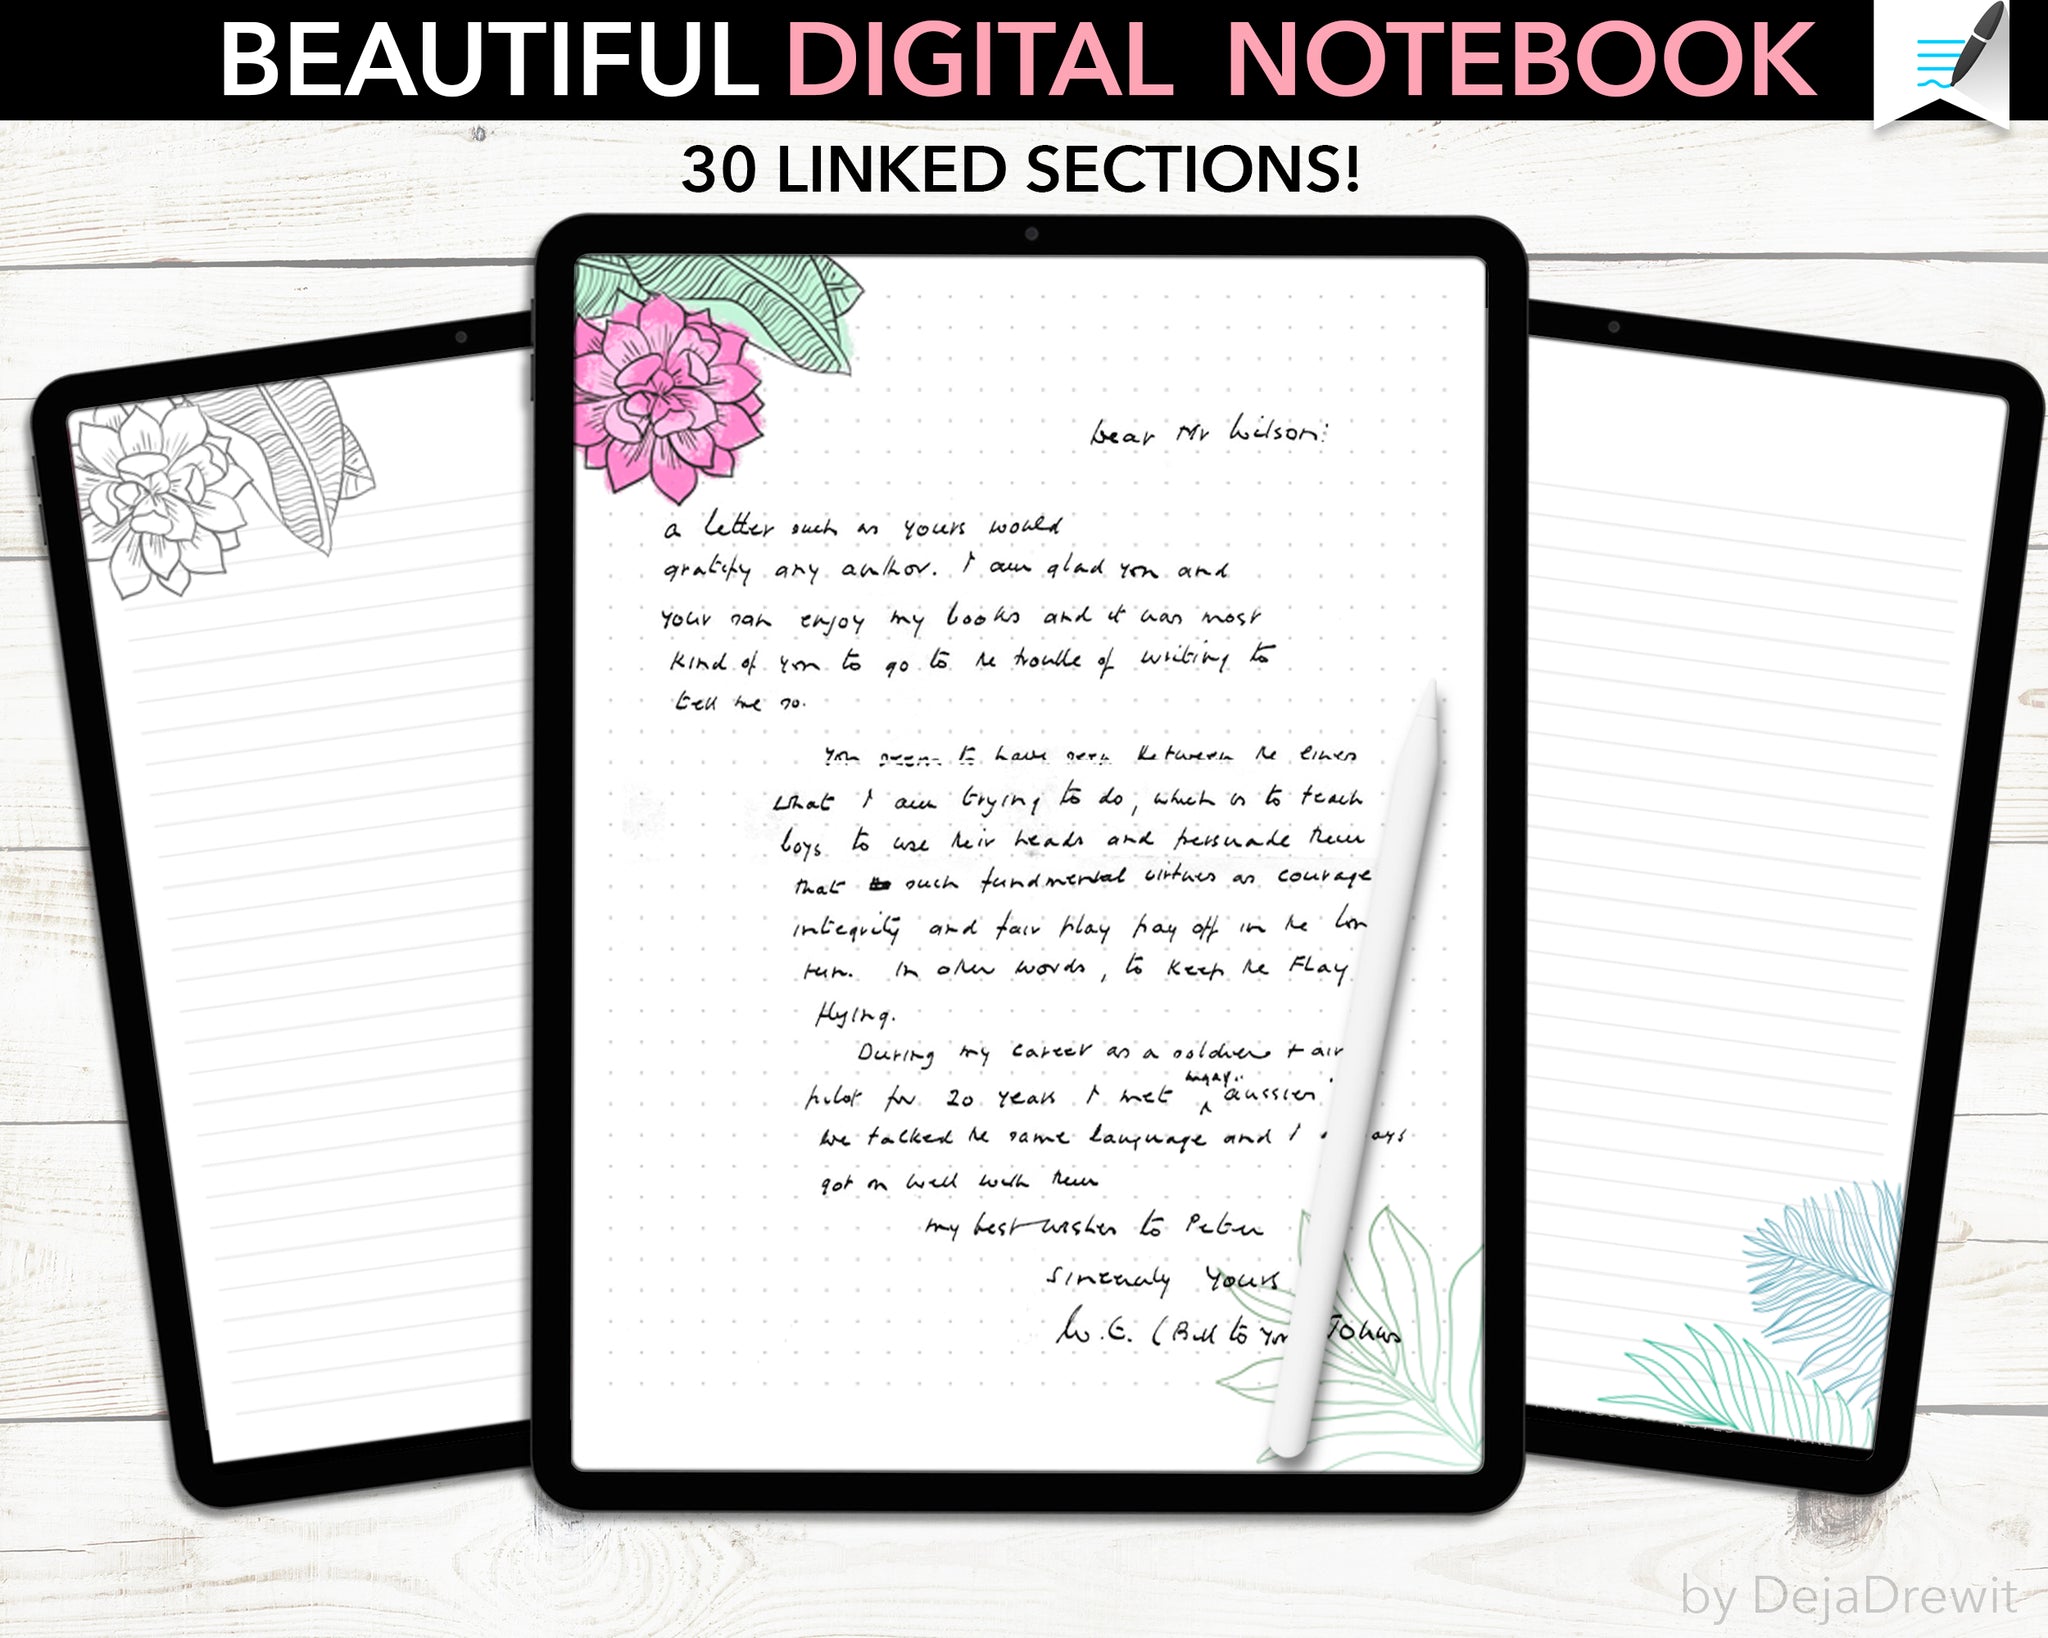 BEAUTIFUL DIGITAL NOTEBOOK
30 LINKED SECTIONS!
Dear Mr Wilson:
a letter such as yours would
gratify any author. I am glad you and
your son enjoy my books and it was most
kind of you to go to the trouble of writing to
tell me so.
You seem to have seen between the lines
what I am trying to do, which is to teach
boys to use their heads and persuade them
that such fundmental virtues as courage
integrity and fair play pay off in the lon
run. In other words, to keep the Flag
flying.
During my career as a soldier + air
pilot for 20 years I met many aussies
We talked the same language and I
got on well with them
My best wishes to Peter
Sincerely Yours
W.E. (Bill to you Johns
NOTES HOME
by DejaDrewit